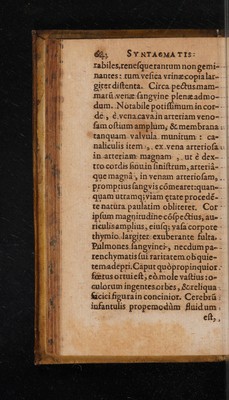 64. SYNTAGMATIS
rabiles, renesque tantum non gemi-
nantes: tum vesica vrinæ copia lar-
giter distenta. Circa pectus mam-
marũ venæ sangvine plenæ admo-
dum. Notabile potissimum in cor-
de, è vena cava in arteriam veno-
sam ostium amplum, & membrana
tanquam valvula munitum: ca-
naliculis item, ex vena arteriosa
in arteriam magnam, ut è dex-
tro cordis sinu in sinistrum, arteriã-
que magnã, in venam arteriosam,
promptius sangvis cõmearet: quan-
quam utramq; viam ætate procedẽ-
te natura paulatim obliteret. Cor
ipsum magnitudine cõspectius, au-
riculis amplius, eiusq; vasa corpore
thymio largiter exuberante fulta.
Pulmones sangvinei, necdum pa-
renchymatis sui raritatem ob quie-
tem adepti. Caput quò propinquior
fœtus ortui est, eò mole vastius: o-
culorum ingentes orbes, & reliqua
faciei figura in concinior. Cerebrũ
infantulis propemodùm fluidum
est,